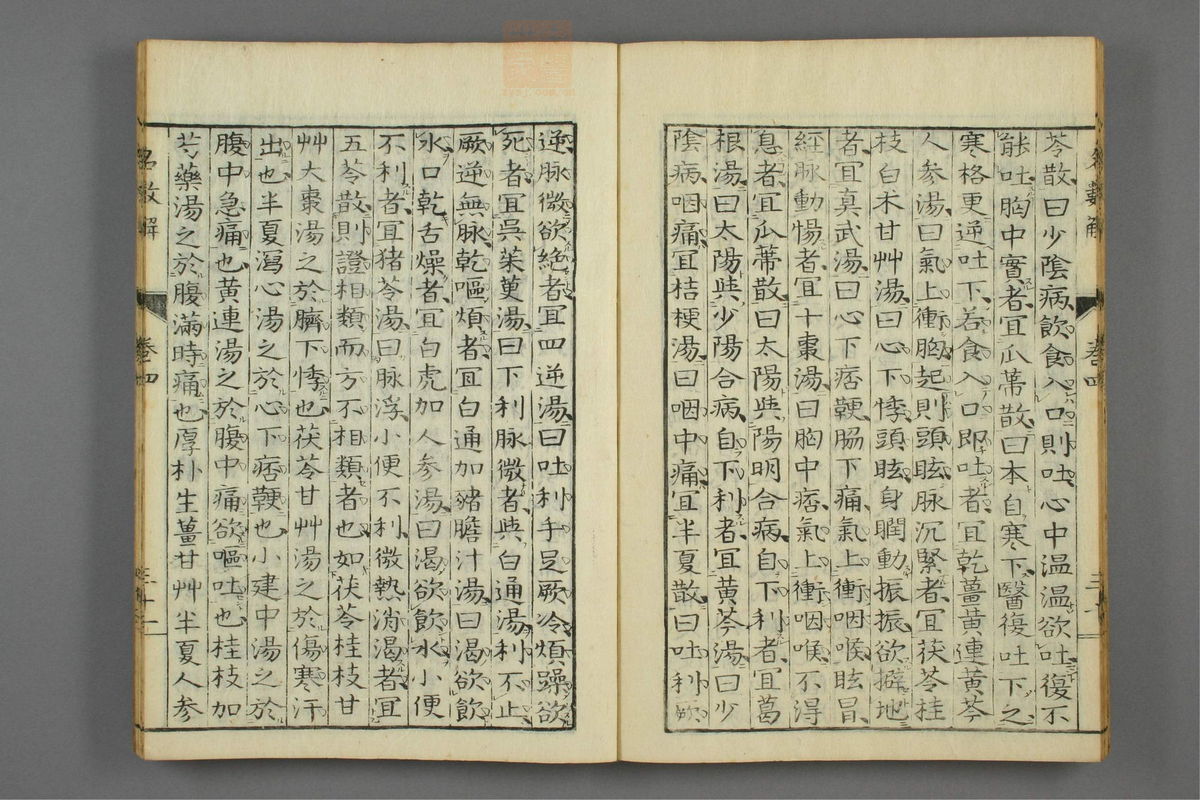 苓散曰少陰病飲食入口則吐心中温温欲吐復不
能吐胸中實者宜瓜蔕散曰本自寒下醫復吐下之
寒格更逆吐下若食入口即吐者宜乾薑黄連黄芩
人參湯曰氣上衝胸起則頭眩脉沉緊者宜茯苓桂
枝白朮甘艸湯曰心下悸頭眩身瞤動振振欲擗地
者宜真武湯曰心下痞鞕脇下痛氣上衝咽喉眩冒
經脉動惕者宜十棗湯曰胸中痞氣上衝咽喉不得
息者宜瓜蔕散曰太陽與陽明合病自下利者宜葛
根湯曰太陽與少陽合病自下利者宜黄芩湯曰少
陰病咽痛宜桔梗湯曰咽中痛宜半夏散曰吐利
逆脉微欲絶者宜四逆湯曰吐利手足厥冷煩躁欲
死者宜呉茱萸湯曰下利脉微者與白通湯利不止
厥逆無脉乾嘔煩者宜白通加豬膽汁湯曰渴欲飲
水口乾舌燥者宜白虎加人參湯曰渴欲飲水小便
不利者宜猪苓湯曰脉浮小便不利微熱消渴者宜
五苓散則證相類而方不相類者也如茯苓桂枝甘
艸大棗湯之於臍下悸也茯苓甘艸湯之於傷寒汗
出也半夏瀉心湯之於心下痞鞕也小建中湯之於
腹中急痛也黄連湯之於腹中痛欲嘔吐也桂枝加
芍藥湯之於腹滿時痛也厚朴生薑甘艸半夏人參
名數解
卷四